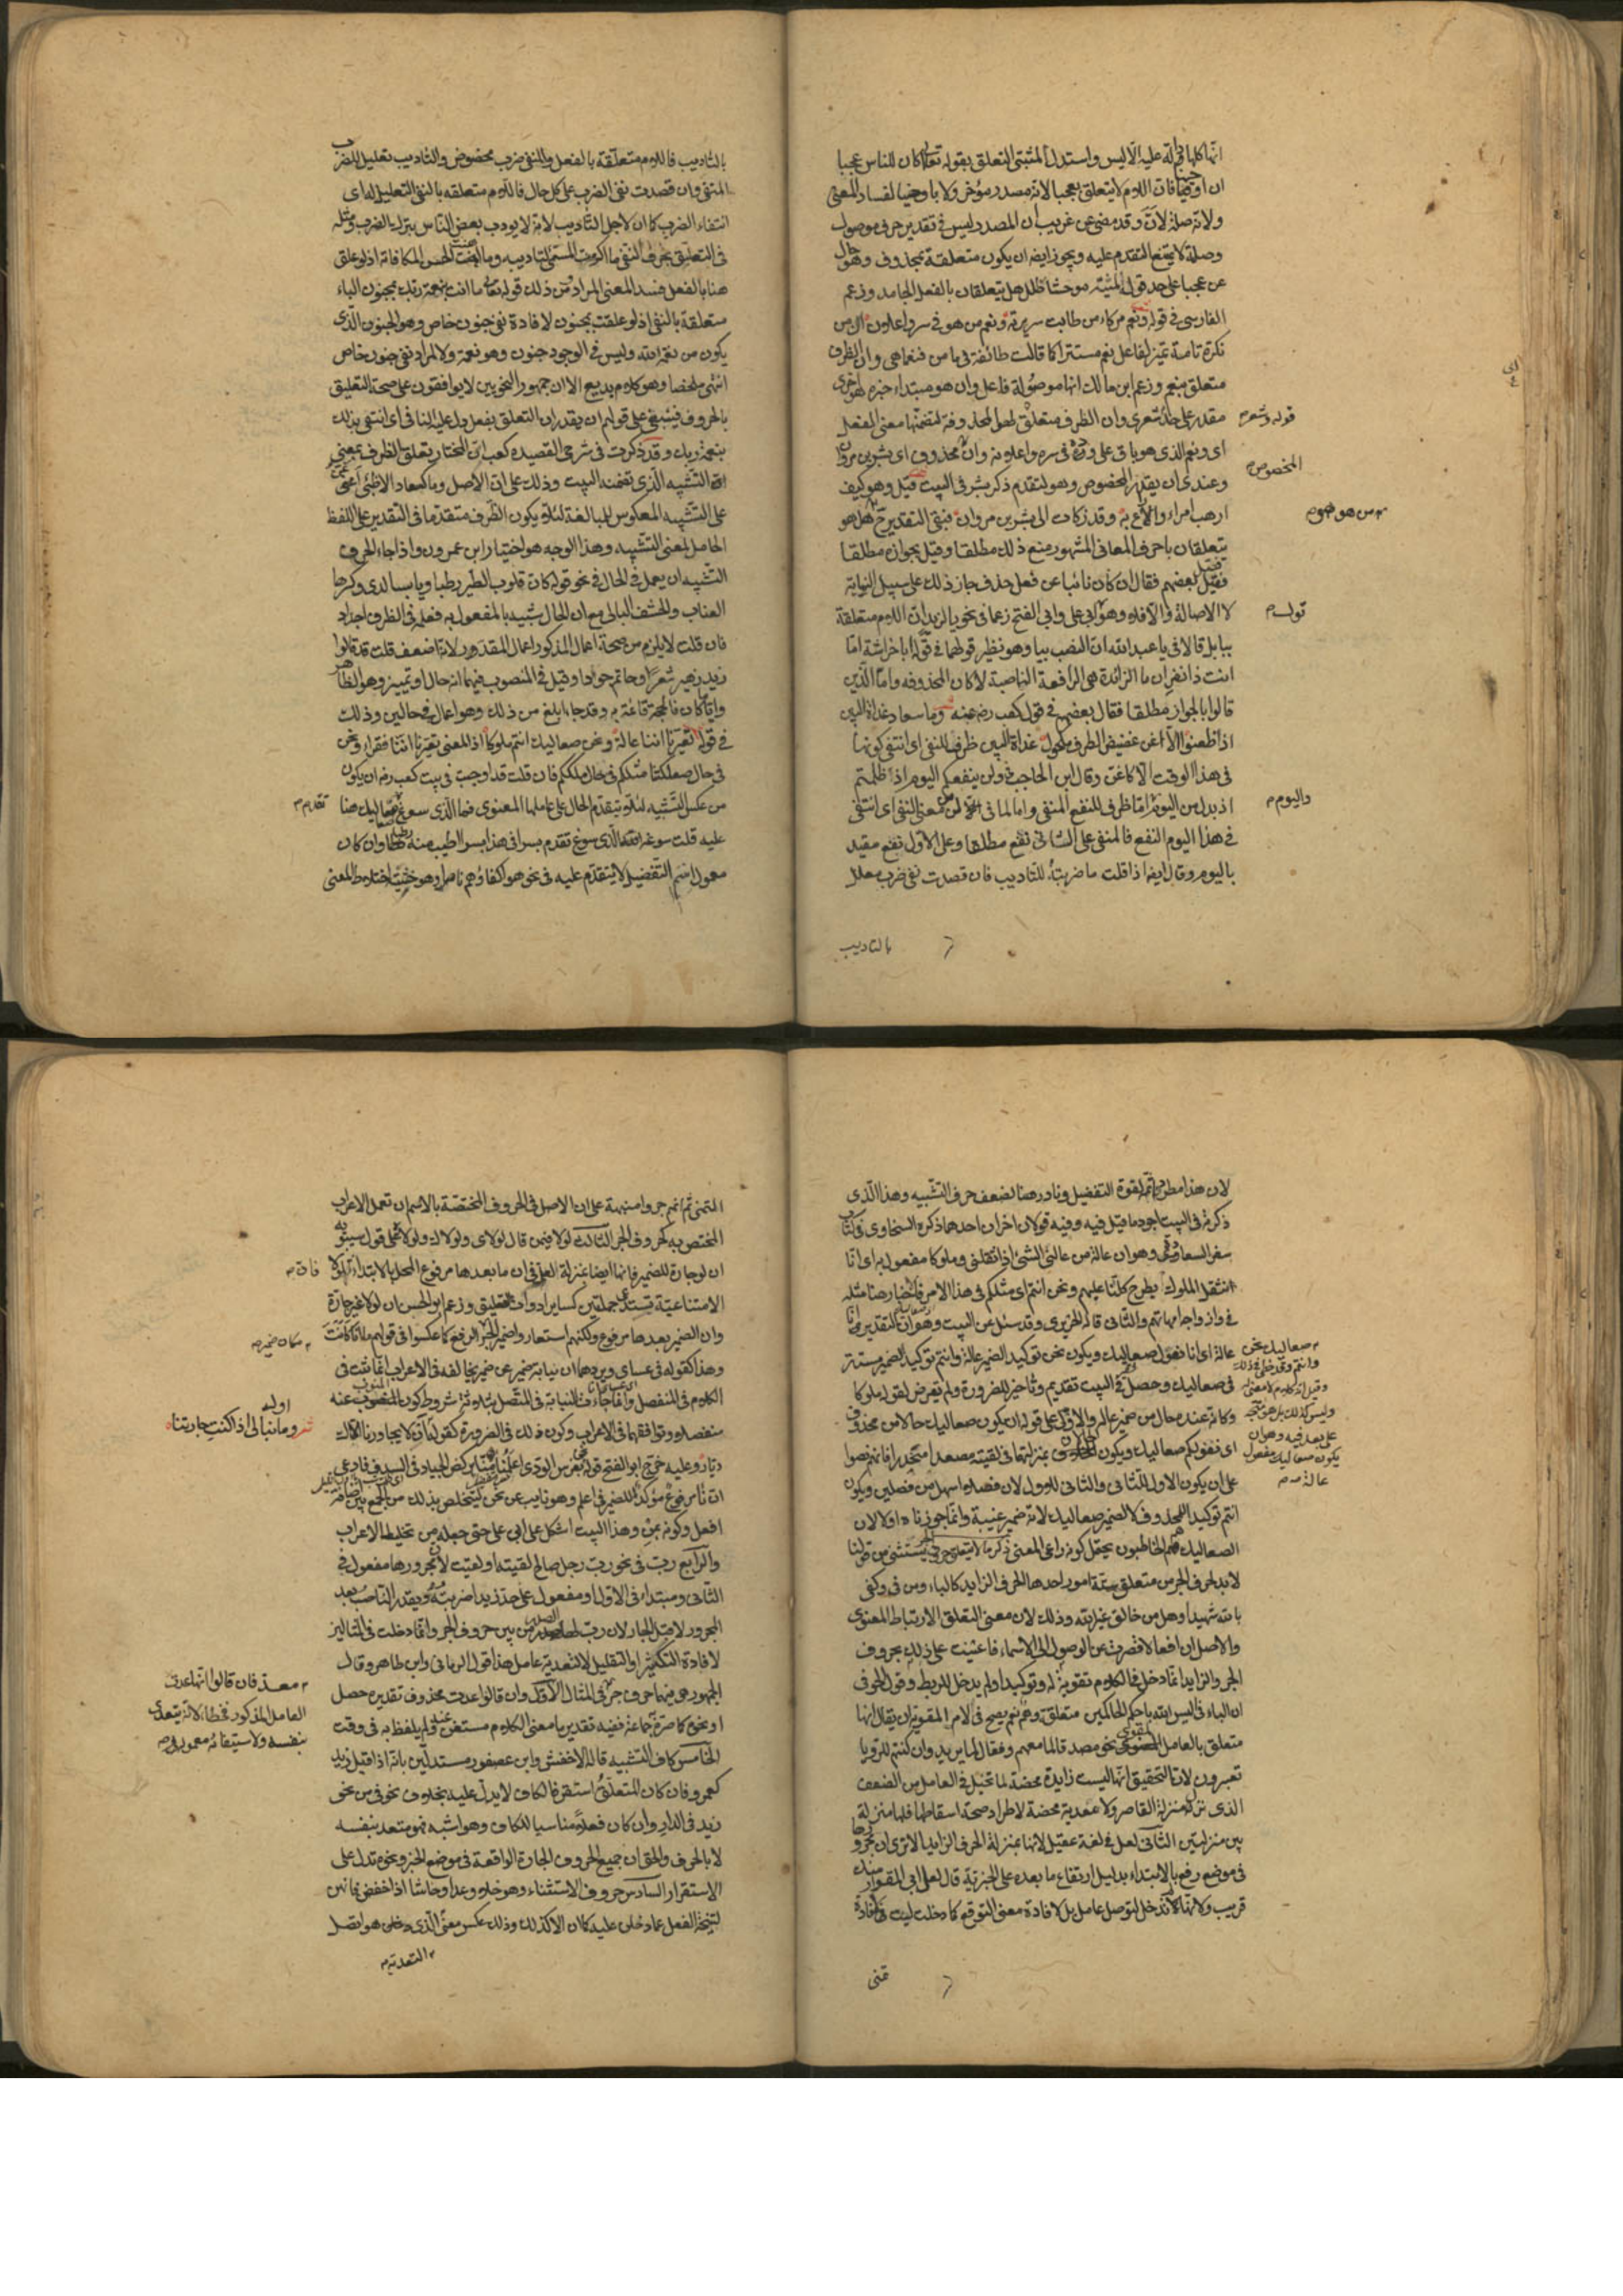 انها كلها دالة عليه الا ليس واستدل لمثبتى التعلق بقوله تعالى اكان للناس عجبا
ان اوحينا فان اللام لا يتعلق بعجبا لانه مصدر مؤخر ولا باوحينا لفساد المعنى
ولانه صلة لان وقد مضى عن قريب ان المصدر ليس فى تقدير حرف موصول
وصلة لا يمتنع التقدم عليه ويجوز ايضا ان يكون متعلقة بمحذوف وهو حال
من عجبا على حد قوله لمية موحشا طلل هل يتعلقان بالفعل الجامد وزعم
الفارسى فى قوله ونعم مزكاء من طابت سريرته ونعم من هو فى سر واعلان ان من
نكرة تامة تميز لفاعل نعم مستترا كما قالت طائفة فى ما من فنعما هى وان الظرف
متعلق بنعم وزعم ابن مالك انها موصولة فاعل وان هو مبتداء خبره هو اخرى
مقدر على حد شعرى وان الظرف متعلق بهو المحذوفة لتضمنها معنى الفعل
قوله وشعرى
اى ونعم الذى هو باق على وده فى سره واعلانه وان محذوف اى بشر بن مروان
المخصوص
وعندى ان يقدر المخصوص هو لتقدم ذكر بشر فى البيت قبله وهو كيف
ارهب امراء او اراع به وقد زكات الى بشر بن مروان فبقى التقدير ح هل هو
من هو هو
يتعلقان باحرف المعانى المشهور منع ذلك مطلقا وقيل بجوازه مطلقا
فصل بعضهم فقال ان كان نائبا عن فعل حذف جاز ذلك على سبيل النيابة
لا الاصالة والا فلا وهو قول ابى على وابى الفتح زعما فى نحو يا لزيد ان اللام متعلقة
قوله
بيا بل قالا فى يا عبد الله ان النصب بيا وهو نظير قولهما فى قوله ابا خراشة اما
انت ذا نفر ان ما الزائدة هى الرافعة الناصبة لا كان المحذوفة واما الذين
قالوا بالجواز مطلقا فقال بعضهم فى قول كعب رضى عنه وما سعاد غداة البين
اذ ظعنوا الا اغن غضيض الطرف مكحول غداة البين ظرف للنفى اى انتفى كونها
فى هذا الوقت الا كاغن وقال ابن الحاجب فى ولن ينفعكم اليوم اذ ظلمتم
اذ بدل من اليوم اما ظرف للنفع المنفى واما لما فى لن من معنى النفى اى انتفى
واليوم
فى هذا اليوم النفع فالمنفى على الثانى نفع مطلق وعلى الاول نفع مقيد
باليوم وقال ايضا اذا قلت ما ضربته للتاديب فان قصدت نفى ضرب معلل
بالتاديب
بالتاديب فاللام متعلقة بالفعل والمنفى ضرب مخصوص والتاديب تعليل للضرب
المنفى وان قصدت نفى الضرب على كل حال فاللام متعلقة بالنفى التعليل له اى
انتفاء الضرب كان لاجل التاديب لانه لا يودب بعض الناس بترك الضرب ومثله
فى التعلق بحرف النفى ما اكرمت المسئ لتاديبه وما اهنت المحسن لمكافاته اذ لو علق
هذا بالفعل فسد المعنى المراد ومن ذلك قوله تعالى ما انت بنعمة ربك بمجنون الباء
متعلقة بالنفى اذ لو علقت بمجنون لافادة نفى جنون خاص وهو الجنون الذى
يكون من نعمة الله وليس فى الوجود جنون وهو نعمة ولا المراد نفى جنون خاص
انتهى ملخصا وهو كلام بديع الا ان جمهور النحويين لا يوافقون على صحة التعليق
بالحروف فينبغى على قولهم ان يقدر ان التعلق بفعل دل عليه النافى اى انتفى بذلك
بنعمة ربك وقد ذكرت فى شرحى القصيدة كعب ان المختار تعلق الظرف بمعنى
التشبيه الذى تضمنه البيت وذلك على ان الاصل وما كسعاد الا ظبى اغن
على التشبيه المعكوس للمبالغة لئلا يكون الظرف متقدما فى التقدير على اللفظ
الحامل لمعنى التشبيه وهذا الوجه هو اختيار ابن عمرون واذا جاء لحرف
التشبيه ان يعمل فى الحال فى نحو قوله كان قلوب الطير رطبا ويابسا لدى وكرها
العناب والحشف البالى مع ان الحال شبيه بالمفعول به فعمله فى الظرف اجدر
فان قلت لا يلزم من صحة اعمال المذكور اعمال المقدر لانه اضعف قلت قد قالوا
زيد زهير شعرا وحاتم جوادا وقيل فى المنصوب فيهما انه حال او تمييز وهو الظاهر
وايا ما كان فالحجة قائمة به وقد جاء ابلغ من ذلك وهو اعماله فى حالين وذلك
فى قوله تعيرنا اننا عالة ونحن صعاليك انتم ملوكا اذ المعنى تعيرنا اننا فقراء ونحن
فى حال صعلكتنا مثلكم فى حال ملككم فان قلت قد اوجبت فى بيت كعب رضى ان يكون
من عكس التشبيه لئلا يتقدم الحال على عاملها المعنوى فما الذى سوغ تقدم صعاليك هنا
تقدم
عليه قلت سوغه الذى سوغ تقدم بسرا فى هذا بسرا اطيب منه رطبا وان كان
معمول اسم التفضيل لا يتقدم عليه فى نحو هو اكفاؤهم ناصرا وهو خشية اختلاط المعنى
لان هذا مطرد ثم لقوة التفضيل ونادر هنا لضعف حرف التشبيه وهذا الذى
ذكرته فى البيت اجود ما قيل فيه وفيه قولان اخران احدهما ذكره السخاوى فى كتاب
سفر السعادة وهو ان عالة من عالنى الشئ اذا اثقلنى وملوكا مفعول به اى انا
نثقل الملوك بطرح كلنا عليهم ونحن انتم اى مثلكم فى هذا الامر فالاخبار هنا مثله
فى وازواجه امهاتهم والثانى قاله الحريرى وقد سئل عن البيت وهو ان التقدير انا
عالة اى انا نعول صعاليك ويكون نحن توكيد الضمير عالة وانتم توكيد الضمير مستتر
صعاليك نحن
فى صعاليك وحصل فى البيت تقديم وتاخير للضرورة ولم يتعرض لقوله ملوكا
وكانه عنده حال من ضمير عالة والاولى على قوله ان يكون صعاليك حالا من محذوف
اى نعولكم صعاليك ويكون بمنزلتها فى لقيته مصعدا منحدرا فانهم نصوا
على ان يكون الاول للثانى والثانى للاول لان فصلا اسهل من فصلين ويكون
يكون صعاليك مفعول
عالة
انتم توكيدا للمحذوف لا لضمير صعاليك لانه ضمير غيبة وانما جوزناه اولا لان
الصعاليك هم المخاطبون يحتمل كونه راعى المعنى ذكر ما لا يتعلق من حروف الجر يستثنى من قولنا
لا بد لحرف الجر من متعلق ستة امور احدها الحرف الزايد كالباء ومن فى وكفى
بالله شهيدا وهل من خالق غير الله وذلك لان معنى التعلق الارتباط المعنوى
والاصل ان افعالا قصرت عن الوصول الى الاسماء فاعينت على ذلك بحروف
الجر والزايد انما دخل فى الكلام تقوية له وتوكيدا ولم يدخل للربط وقول الحوفى
ان الباء فى اليس الله باحكم الحاكمين متعلقة وهم نعم يصح فى اللام المقوية ان يقال انها
متعلق بالعامل المقوى نحو مصدقا لما معهم وفعال لما يريد وان كنتم للرؤيا
تعبرون لان التحقيق انها ليست زايدة محضة لما تخيل فى العامل من الضعف
الذى نزله منزلة القاصر ولا معدية محضة لاطراد صحة اسقاطها فلها منزلة
بين منزلتين الثانى لعل فى لغة عقيل لانها بمنزلة الحرف الزايد الا ترى ان مجرورها
فى موضع رفع بالابتداء بدليل ارتفاع ما بعده على الخبرية قال لعل ابى المغوار منك
قريب ولانها لم تدخل لتوصل عامل بل لافادة معنى التوقع كما دخلت ليت لافادة
تمنى
المتمنى ثم انهم جروا منبهة على ان الاصل فى الحروف المختصة بالاسم ان تعمل الاعراب
المختص به كحروف الجر الثالث لولا فيمن قال لولاى ولولاك ولولاه على قول سيبويه
ان لو جارة للضمير فانها ايضا بمنزلة لعل فى ان ما بعدها مرفوع المحل بالابتداء
فان
الامتناعية تستدعى جملتين كساير ادوات التعليق وزعم ابو الحسن ان لولا غير جارة
وان الضمير بعدها مرفوع ولكنهم استعاروا ضمير الجر الرفع كما عكسوا فى قولهم ما انا كانت
مكان ضمير
وهذا كقوله فى عساى ويردهما ان نيابة ضمير عن ضمير يخالفه فى الاعراب انما ثبت فى
الكلام فى المنفصل وانما جاءت النيابة فى المتصل بثلاثة شروط كون المنوب عنه
منفصلا وتوافقهما فى الاعراب وكون ذلك فى الضرورة كقوله ان لا يجاورنا الاك
اوله
وما نبالى اذا ما كنت جارتنا
ديار وعليه خرج ابو الفتح قوله نحن بغرس الودى اعلمنا منا بركض الجياد فى السدف فادعى
ان نا مرفوع مؤكد للضمير فى اعلم وهو نايب عن نحن ليتخلص بذلك من الجمع بين اضافة
افعل وكونه بمن وهذا البيت اشكل على ابى على حتى جعله من تخليط الاعراب
والرابع رب فى نحو رب رجل صالح لقيته او لقيت لان مجرورها مفعول فى
الثانى ومبتداء فى الاول او مفعول على حد زيدا ضربته ويقدر الناصب بعد
المجرور لا قبل الجار لان رب لها الصدر من بين حروف الجر وانما دخلت فى المثالين
لافادة التكثير او التقليل لا لتعدية عامل هذا قول الرمانى وابن طاهر وقال
الجمهور هى فيهما حرف جر فى المثال الاول وان قالوا عدت محذوف تقديره حصل
معد فان قالوا انها عدت
العامل المذكور فخطا لانه يتعدى
بنفسه ولاستيفائه معموله
او نحوه كما صرح جماعة ففيه تقدير ما معنى الكلام مستغن عنه ولم يلفظ به فى وقت
الخامس كاف التشبيه قاله الاخفش وابن عصفور مستدلين بانه اذا قيل زيد
كعمرو فان كان المتعلق استقر فالكاف لا يدل عليه بخلاف نحو فى من نحو
زيد فى الدار وان كان فعلا مناسبا للكاف وهو اشبه فهو متعد بنفسه
لا بالحرف والحق ان جميع الحروف الجارة الواقعة فى موضع الخبر ونحوه تدل على
الاستقرار السادس حروف الاستثناء وهو خلا وعدا وحاشا اذا خفض فانهن
لتنحية الفعل عما دخلن عليه كما ان الا كذلك وذلك عكس معنى الذى هو ايصل
التعدية